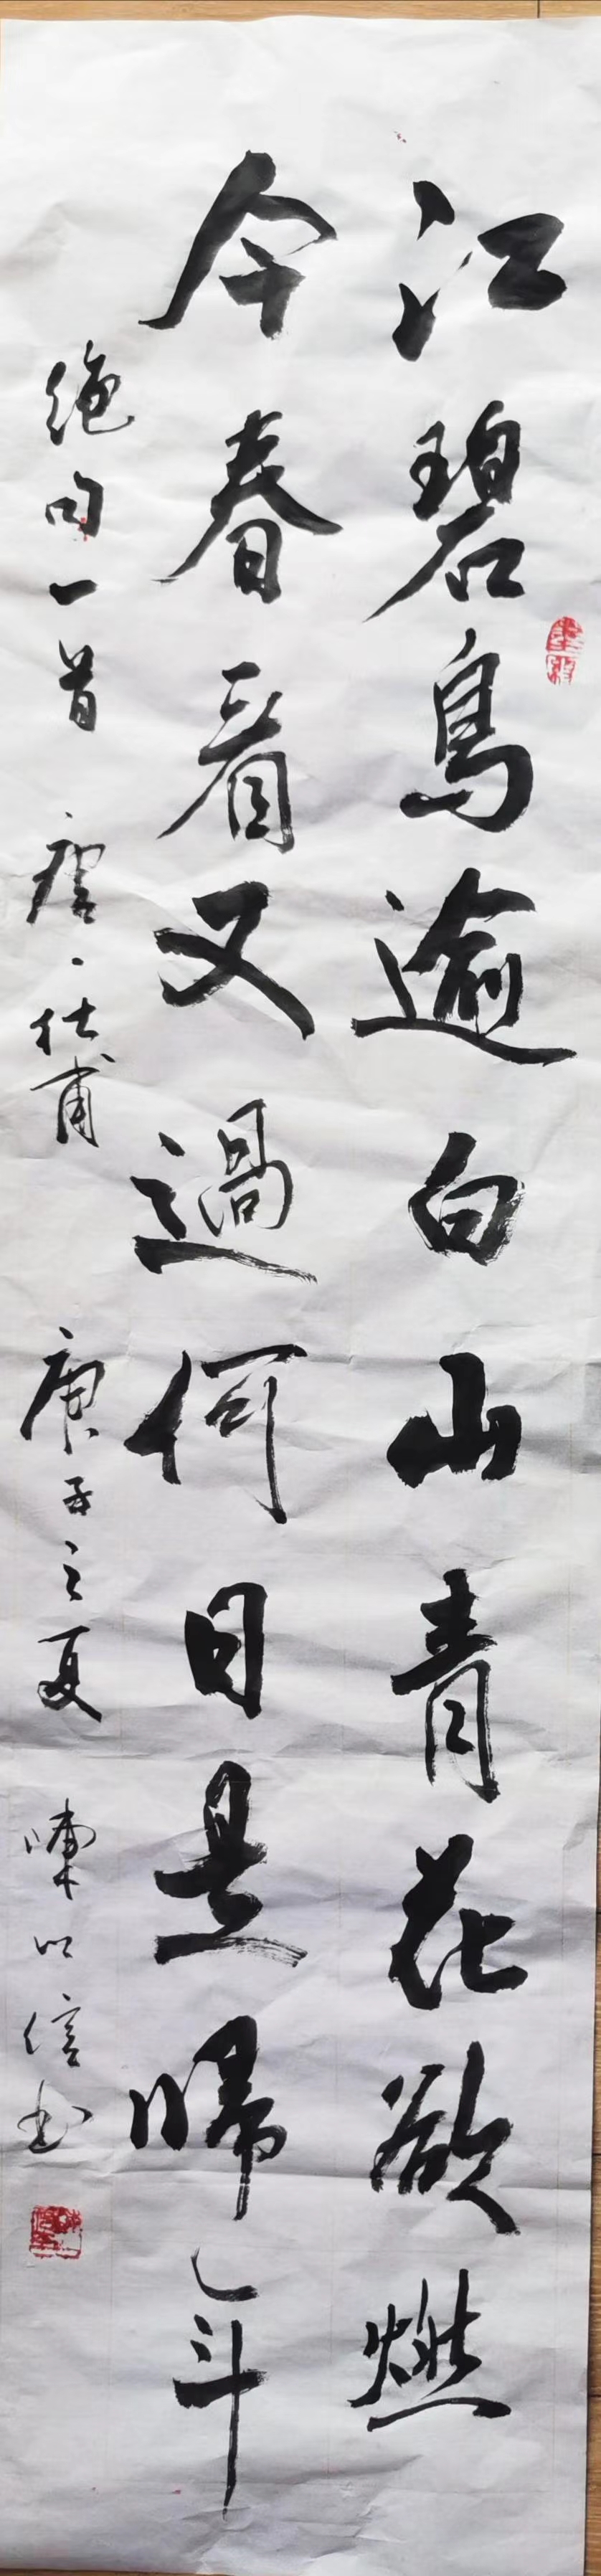 江碧鳥逾白山青花欲燃
今春看又過何日是歸年
絕句一首 唐·杜甫 庚子之夏 陳以信书